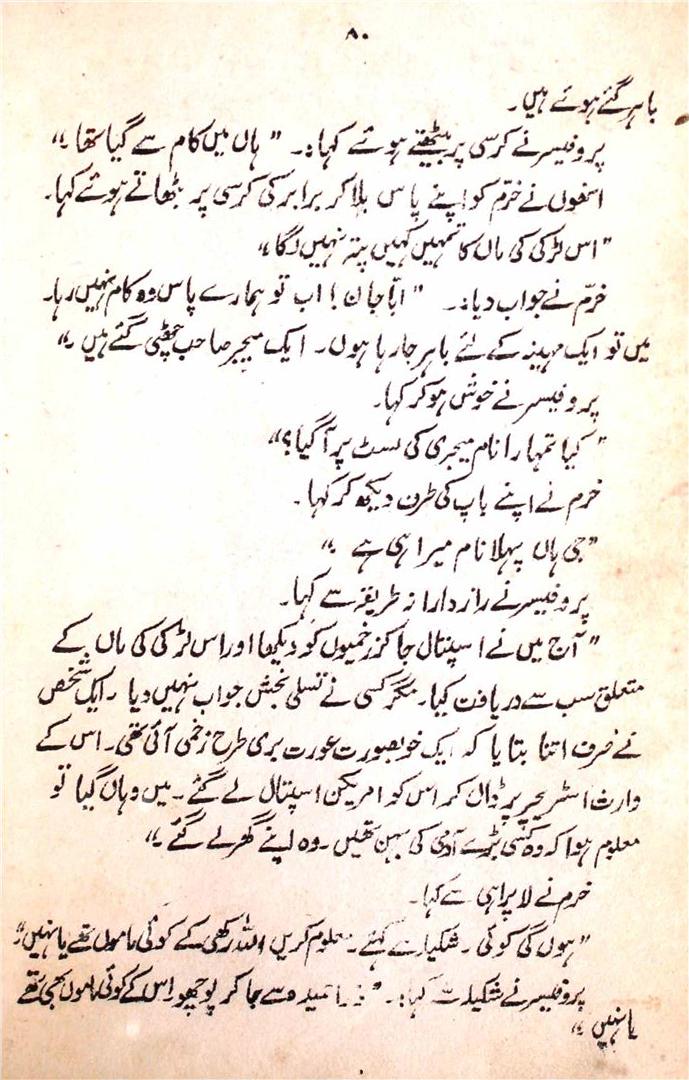 ۸۰
باہر گئے ہوئے ہیں۔
پروفیسر نے کرسی پر بیٹھتے ہوئے کہا:۔ "ہاں میں کام سے گیا تھا۔"
انھوں نے خرّم کو اپنے پاس بلا کر برابر کی کرسی پر بٹھاتے ہوئے کہا۔
"اس لڑکی کی ماں کا تمہیں کہیں پتہ نہیں لگا"
خرّم نے جواب دیا:۔ "ابّا جان! اب تو ہمارے پاس وہ کام نہیں رہا۔
میں تو ایک مہینہ کے لئے باہر جا رہا ہوں۔ ایک میجر صاحب چھٹی گئے ہیں۔"
پروفیسر نے خوش ہو کر کہا۔
"کیا تمہارا نام میجری کی لسٹ پر آ گیا؟"
خرم نے اپنے باپ کی طرف دیکھ کر کہا۔
"جی ہاں پہلا نام میرا ہی ہے۔"
پروفیسر نے رازدارانہ طریقہ سے کہا۔
"آج میں نے اسپتال جا کر زخمیوں کو دیکھا اور اس لڑکی کی ماں کے
متعلق سب سے دریافت کیا۔ مگر کسی نے تسلی بخش جواب نہیں دیا۔ ایک شخص
نے صرف اتنا بتایا کہ ایک خوبصورت عورت بری طرح زخمی آئی تھی۔ اس کے
وارث اسٹریچر پر ڈال کر اس کو امریکن اسپتال لے گئے۔ میں وہاں گیا تو
معلوم ہوا کہ وہ کسی بڑے آدمی کی بہن تھیں۔ وہ اپنے گھر لے گئے۔"
خرم نے لاپراہی سے کہا۔
"ہوں گی کوئی۔ شکیلہ سے کہئے۔ معلوم کریں اللہ رکھی کے کوئی ماموں تھے یا نہیں"
پروفیسر نے شکیلہ سے کہا:۔ "ذرا سے جا کر پوچھو اس کے کوئی ماموں بھی تھے
یا نہیں۔"